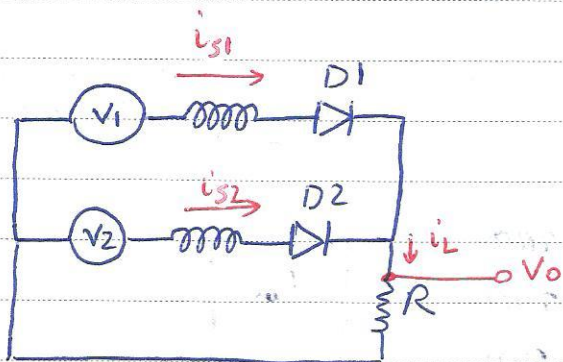 is1
D1
V1
is2
D2
V2
iL
Vo
R